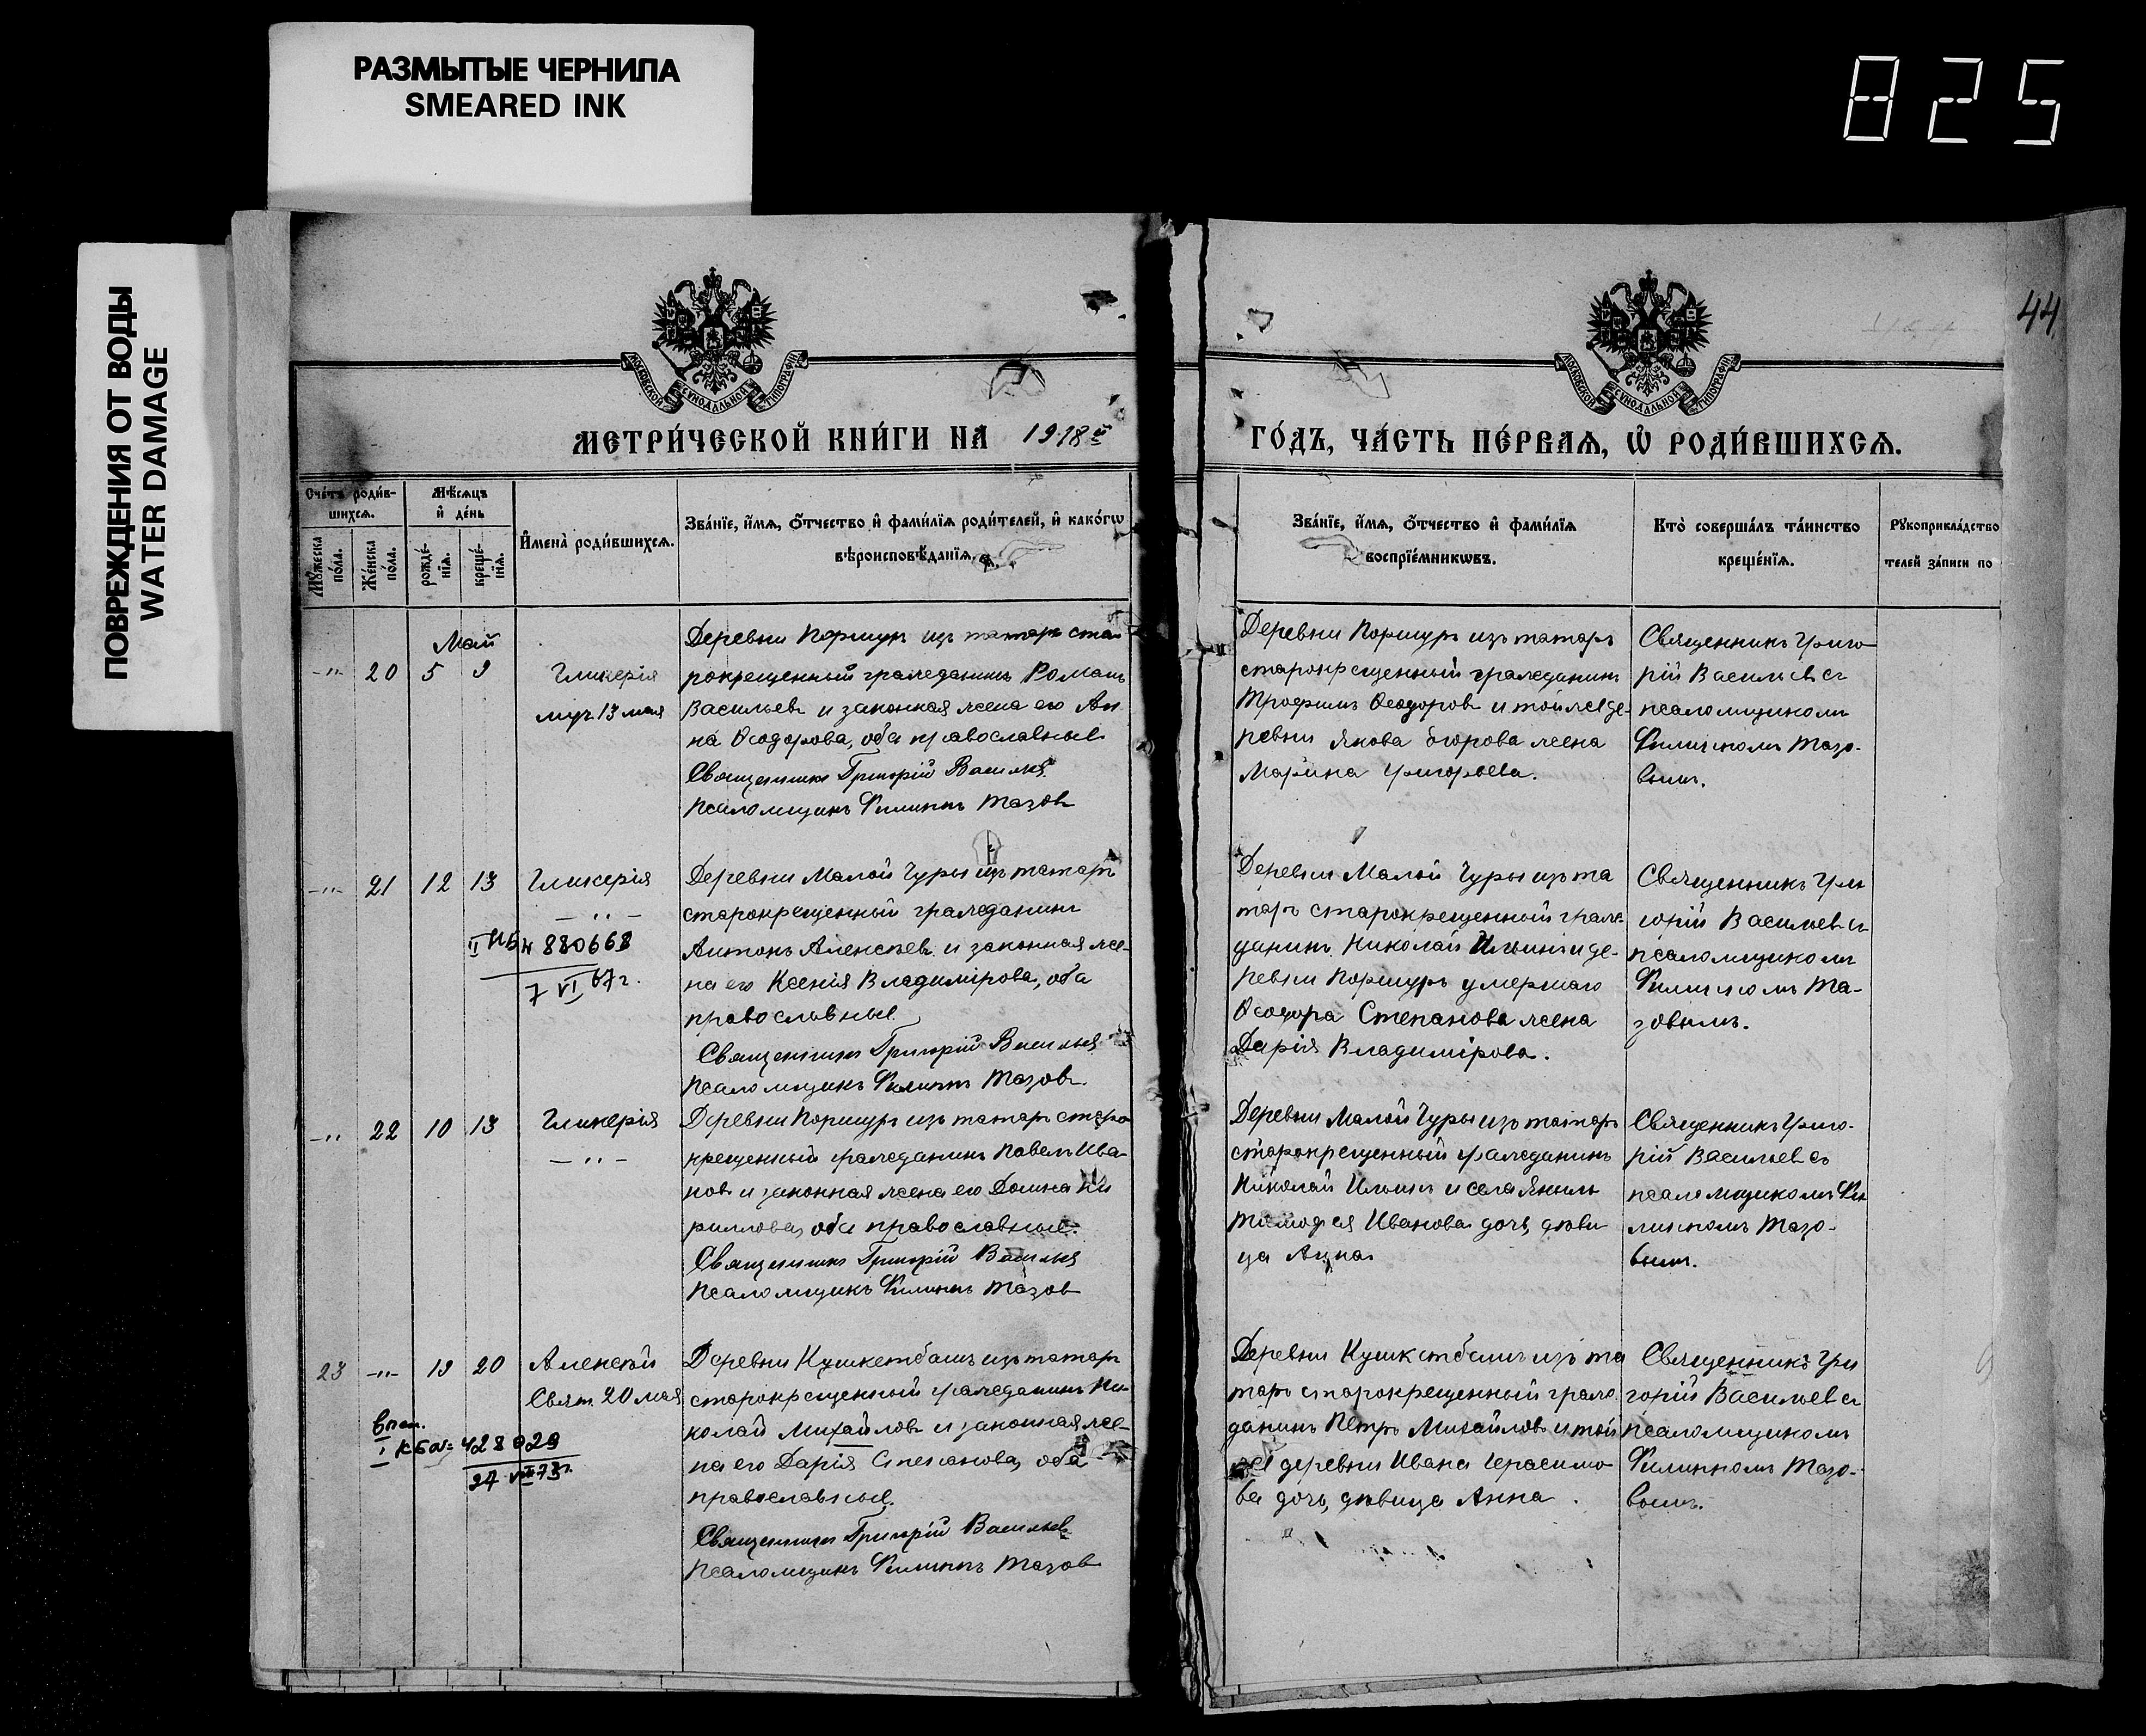 РАЗМЫТЫЕ ЧЕРНИЛА
SMEARED INK
825
ПОВРЕЖДЕНИЯ ОТ ВОДЫ
WATER DAMAGE
44
МОСКОВСКОЙ СѴНОДАЛЬНОЙ ТИПОГРАФІИ
МОСКОВСКОЙ СѴНОДАЛЬНОЙ ТИПОГРАФІИ
МЕТРИ́ЧЕСКОЙ КНИ́ГИ НА 1918й
ГО́ДЪ, ЧА́СТЬ ПЕ́РВАѦ, Ѽ РОДИ́ВШИХСѦ.
Сче́тъ роди́в-
шихсѧ.
Мѣ́сѧцъ
и҆ де́нь
Мꙋ́жеска
по́ла.
Же́нска
по́ла.
рожде́-
нїѧ.
креще́-
нїѧ.
И҆мена̀ роди́вшихсѧ.
Зва́нїе, и҆́мѧ, ѻ҆́тчество и҆ фами́лїѧ роди́телей, и҆ како́гѡ
вѣроисповѣ́данїѧ.
Зва́нїе, и҆́мѧ, ѻ҆́тчество и҆ фами́лїѧ
воспрїе́мникѡвъ.
Кто̀ соверша́лъ та́инство
креще́нїѧ.
Рꙋкоприкла́дство
телей за́писи по
Май
-"- 20 5 9
Гликерія
муч. 13 мая
Деревни Поршуръ изъ татаръ ста-
рокрещенный гражданинъ Романъ
Васильевъ и законная жена его Ан
на Ѳеодорова, оба православные
Священникъ Григорій Васильевъ
Псаломщикъ Филиппъ Тазовъ
Деревни Поршуръ изъ татаръ
старокрещенный гражданинъ
Трофимъ Ѳеодоровъ и той же де-
ревни Якова Егорова жена
Марина Григорьева.
Священникъ Григо
рій Васильевъ съ
псаломщикомъ
Филиппомъ Тазо-
вымъ.
-"- 21 12 13
Гликерія
- " -
II НБ N 880668
7 VI 67 г.
Деревни Малой Чуры изъ татаръ
старокрещенный гражданинъ
Антонъ Алексѣевъ и законная же-
на его Ксенія Владимірова, оба
православные
Священникъ Григорій Васильевъ
Псаломщикъ Филиппъ Тазовъ
Деревни Малой Чуры изъ та
таръ старокрещенный граж-
данинъ Николай Ильинъ и де-
ревни Поршуръ умершаго
Ѳеодора Степанова жена
Дарія Владимірова.
Священникъ Гри
горій Васильевъ съ
псаломщикомъ
Филиппомъ Та-
зовымъ.
-" 22 10 13
Гликерія
- " -
Деревни Поршуръ изъ татаръ старо
крещенный гражданинъ Павелъ Ива-
новъ и законная жена его Домна Ки
риллова, оба православные.
Священникъ Григорій Васильевъ
Псаломщикъ Филиппъ Тазовъ
Деревни Малой Чуры изъ татаръ
старокрещенный гражданинъ
Николай Ильинъ и села Яныль
Тимофея Иванова дочь, дѣви
ца Анна.
Священникъ Григо-
рій Васильевъ съ
псаломщикомъ Фи
липпомъ Тазо-
вымъ.
23 -"- 19 20
Алексѣй
Свят. 20 мая
I КБ № 428029
27 VIII 73 г.
Деревни Кушкетбашъ изъ татаръ
старокрещенный гражданинъ Ни-
колай Михайловъ и законная же-
на его Дарія Степанова, оба
православные.
Священникъ Григорій Васильевъ
Псаломщикъ Филиппъ Тазовъ
Деревни Кушкетбашъ изъ та
таръ старокрещенный граж
данинъ Петръ Михайловъ и той
же деревни Ивана Герасимо
ва дочь, дѣвица Анна.
Священникъ Гри
горій Васильевъ съ
псаломщикомъ
Филиппомъ Тазо-
вымъ.